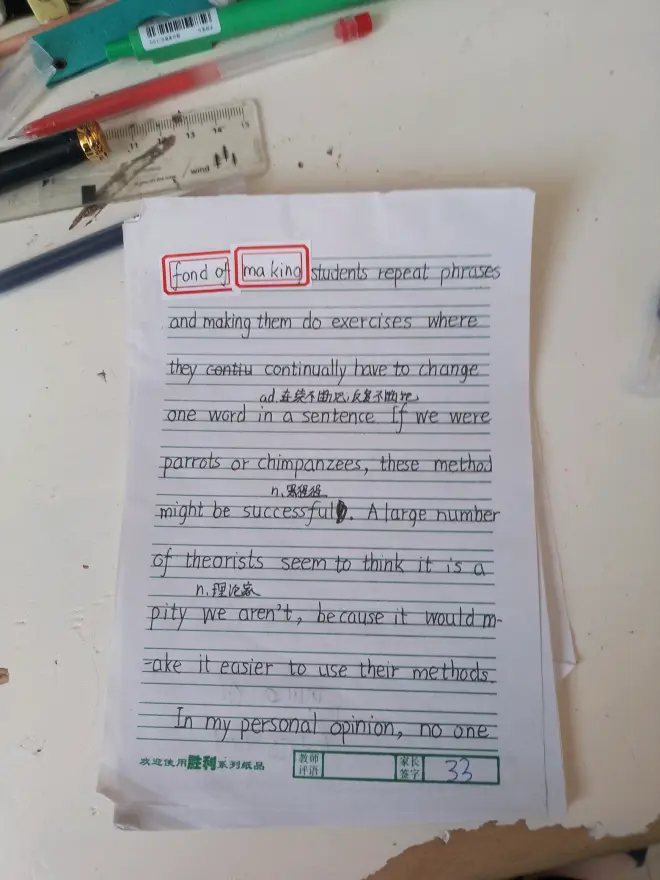 11 13 14 15
wind
fond of making students repeat phrases
and making them do exercises where
they contiu continually have to change
ad. 连续不断地,反复不断地
one word in a sentence. If we were
parrots or chimpanzees, these method
n. 黑猩猩
might be successful. A large number
of theorists seem to think it is a
n. 理论家
pity we aren't, because it would m-
-ake it easier to use their methods.
In my personal opinion, no one
欢迎使用胜利系列纸品
教师评语
家长签字 33